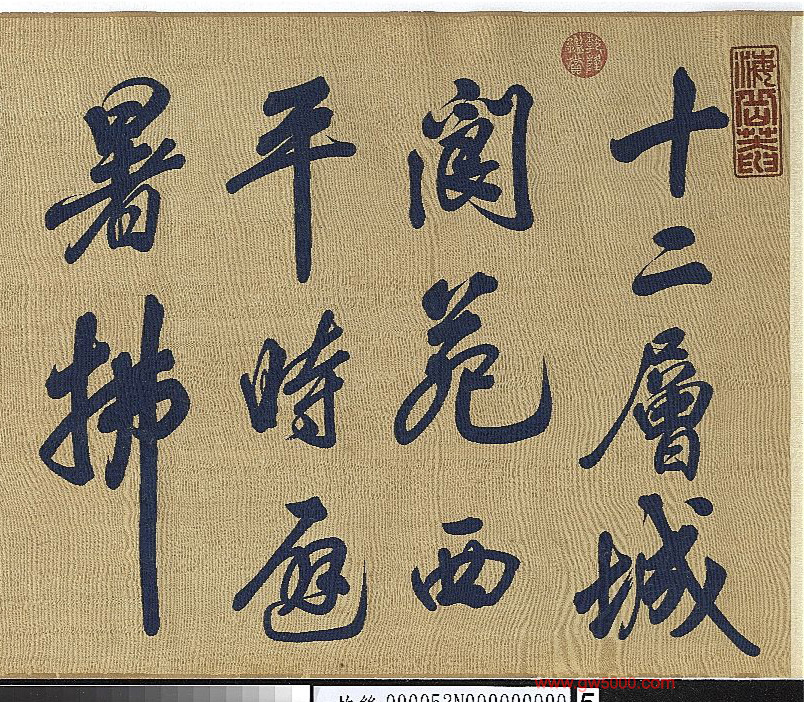 十二層城
閬苑西
平時避
暑拂
www.gw5000.com
000053N000000000
5